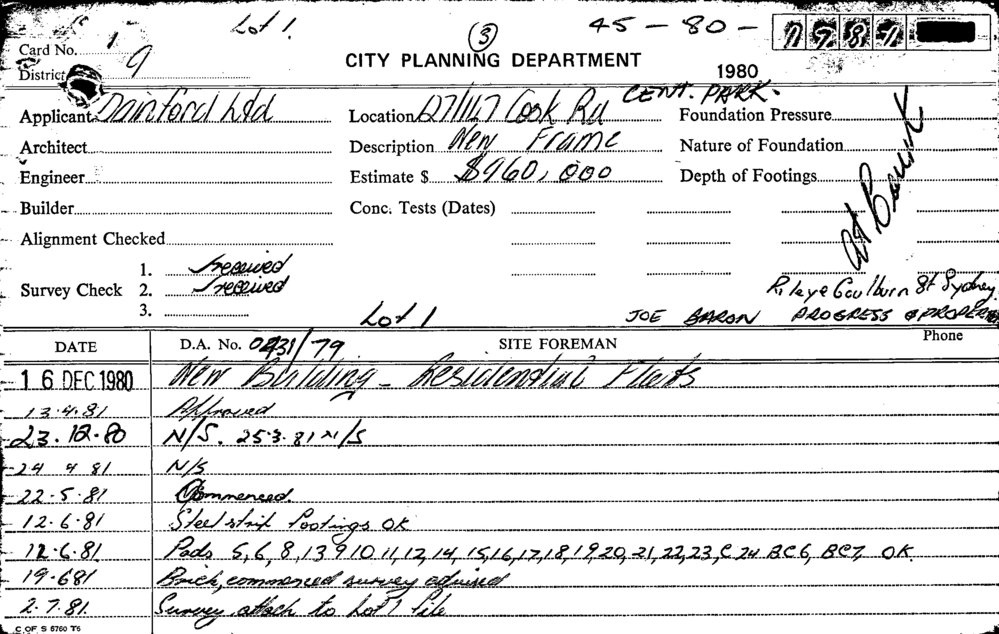 Lot 1. 3 45 – 80 –
Card No. 1
CITY PLANNING DEPARTMENT
District 9 1980
CENT. PARK.
Applicant Dainford Ltd Location Cook Rd Foundation Pressure
Architect Description New Frame Nature of Foundation
Engineer Estimate $ $960,000 Depth of Footings
Builder Conc. Tests (Dates)
Alignment Checked
Survey Check 1. received
2. received
3.
Goulburn St Sydney
Lot 1 JOE BARON PROGRESS & PROPER
DATE D.A. No. 0431/79 SITE FOREMAN Phone
16 DEC 1980 New Building – Residential Flats
13.4.81 Approved
23.12.80 N/S. 25.3.81 N/S
24 4 81 N/S
22.5.81 Commenced.
12.6.81 Steel strip footings OK
12.6.81. Pads 5,6,8,13 9 10 11,12,14, 15,16,17,18,19 20, 21, 22,23, C 24 BC6, BC7, OK
19.681 Brick, commenced survey advised
2.7.81. Survey attach to Lot 1 file
C OF S 6760 T6